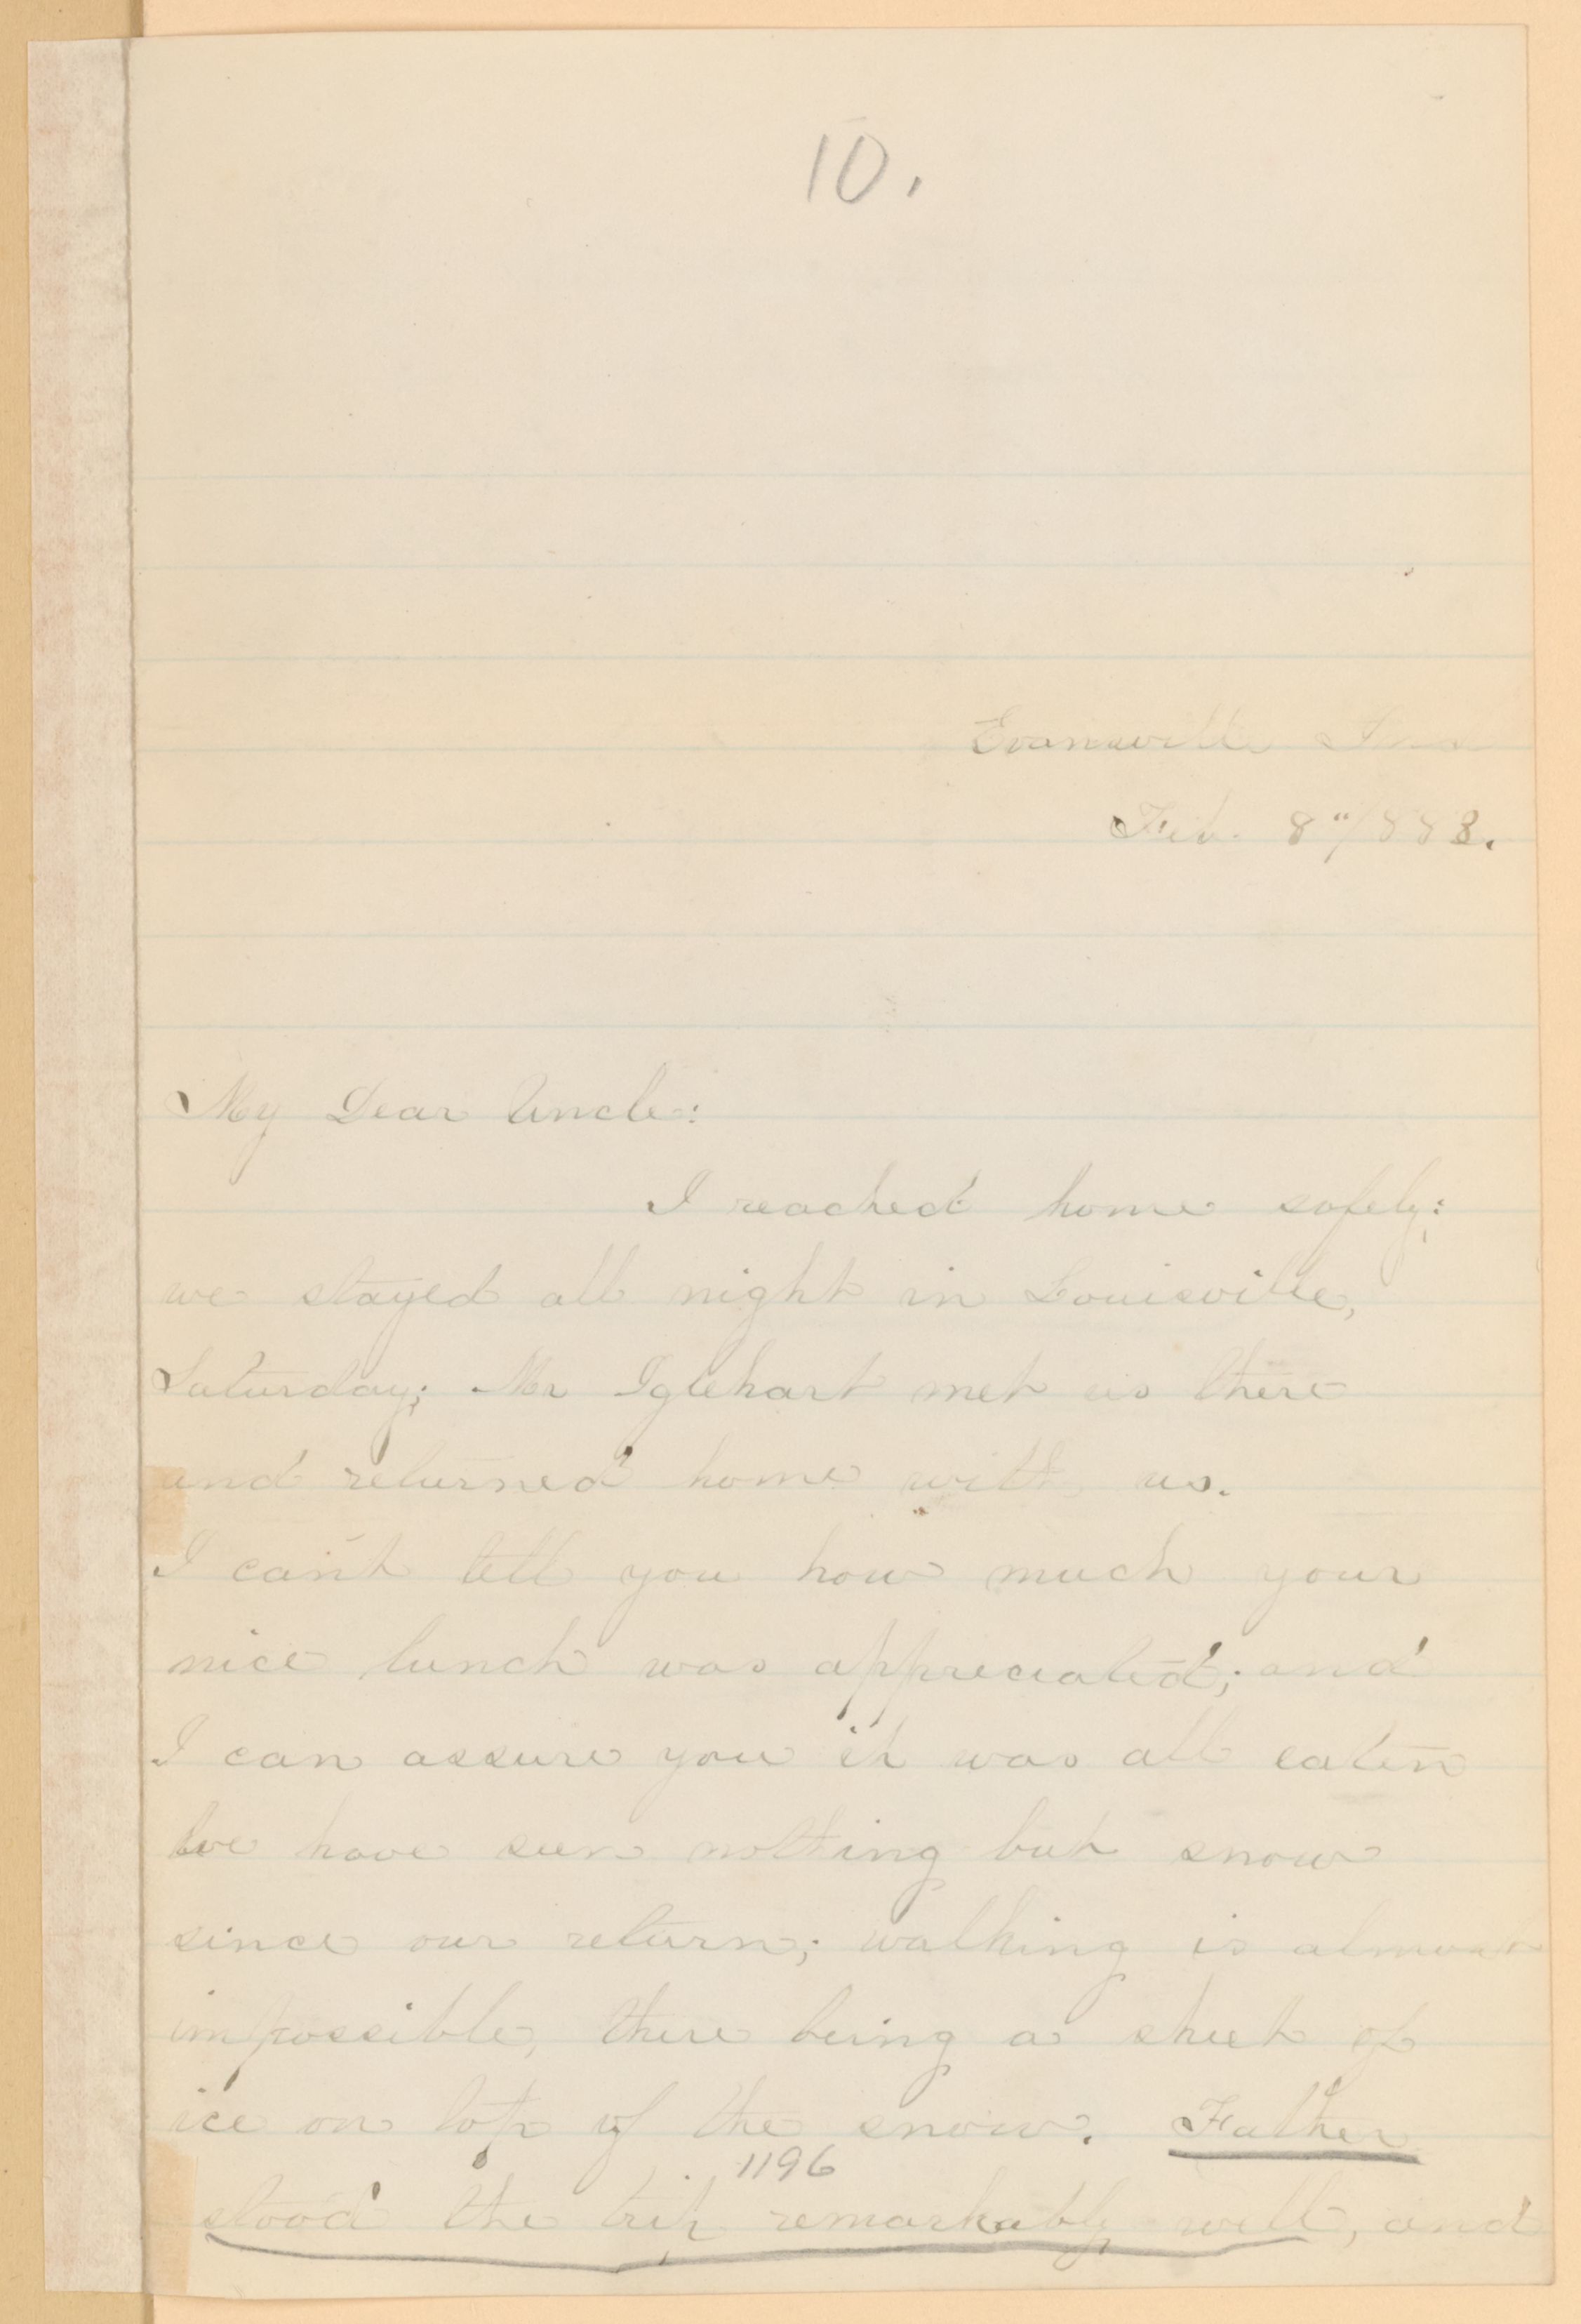 10.
Evansville Ind
Feb. 8"/883.
My Dear Uncle:
I reached home safely;
we stayed all night in Louisville,
Saturday; Mr Iglehart met us there
and returned home with us.
I can't tell you how much your
nice lunch was appreciated; and
I can assure you it was all eaten
We have seen nothing but snow
since our return; walking is almost
impossible, there being a sheet of
ice on top of the snow. Father
1196
stood the trip remarkably well, and